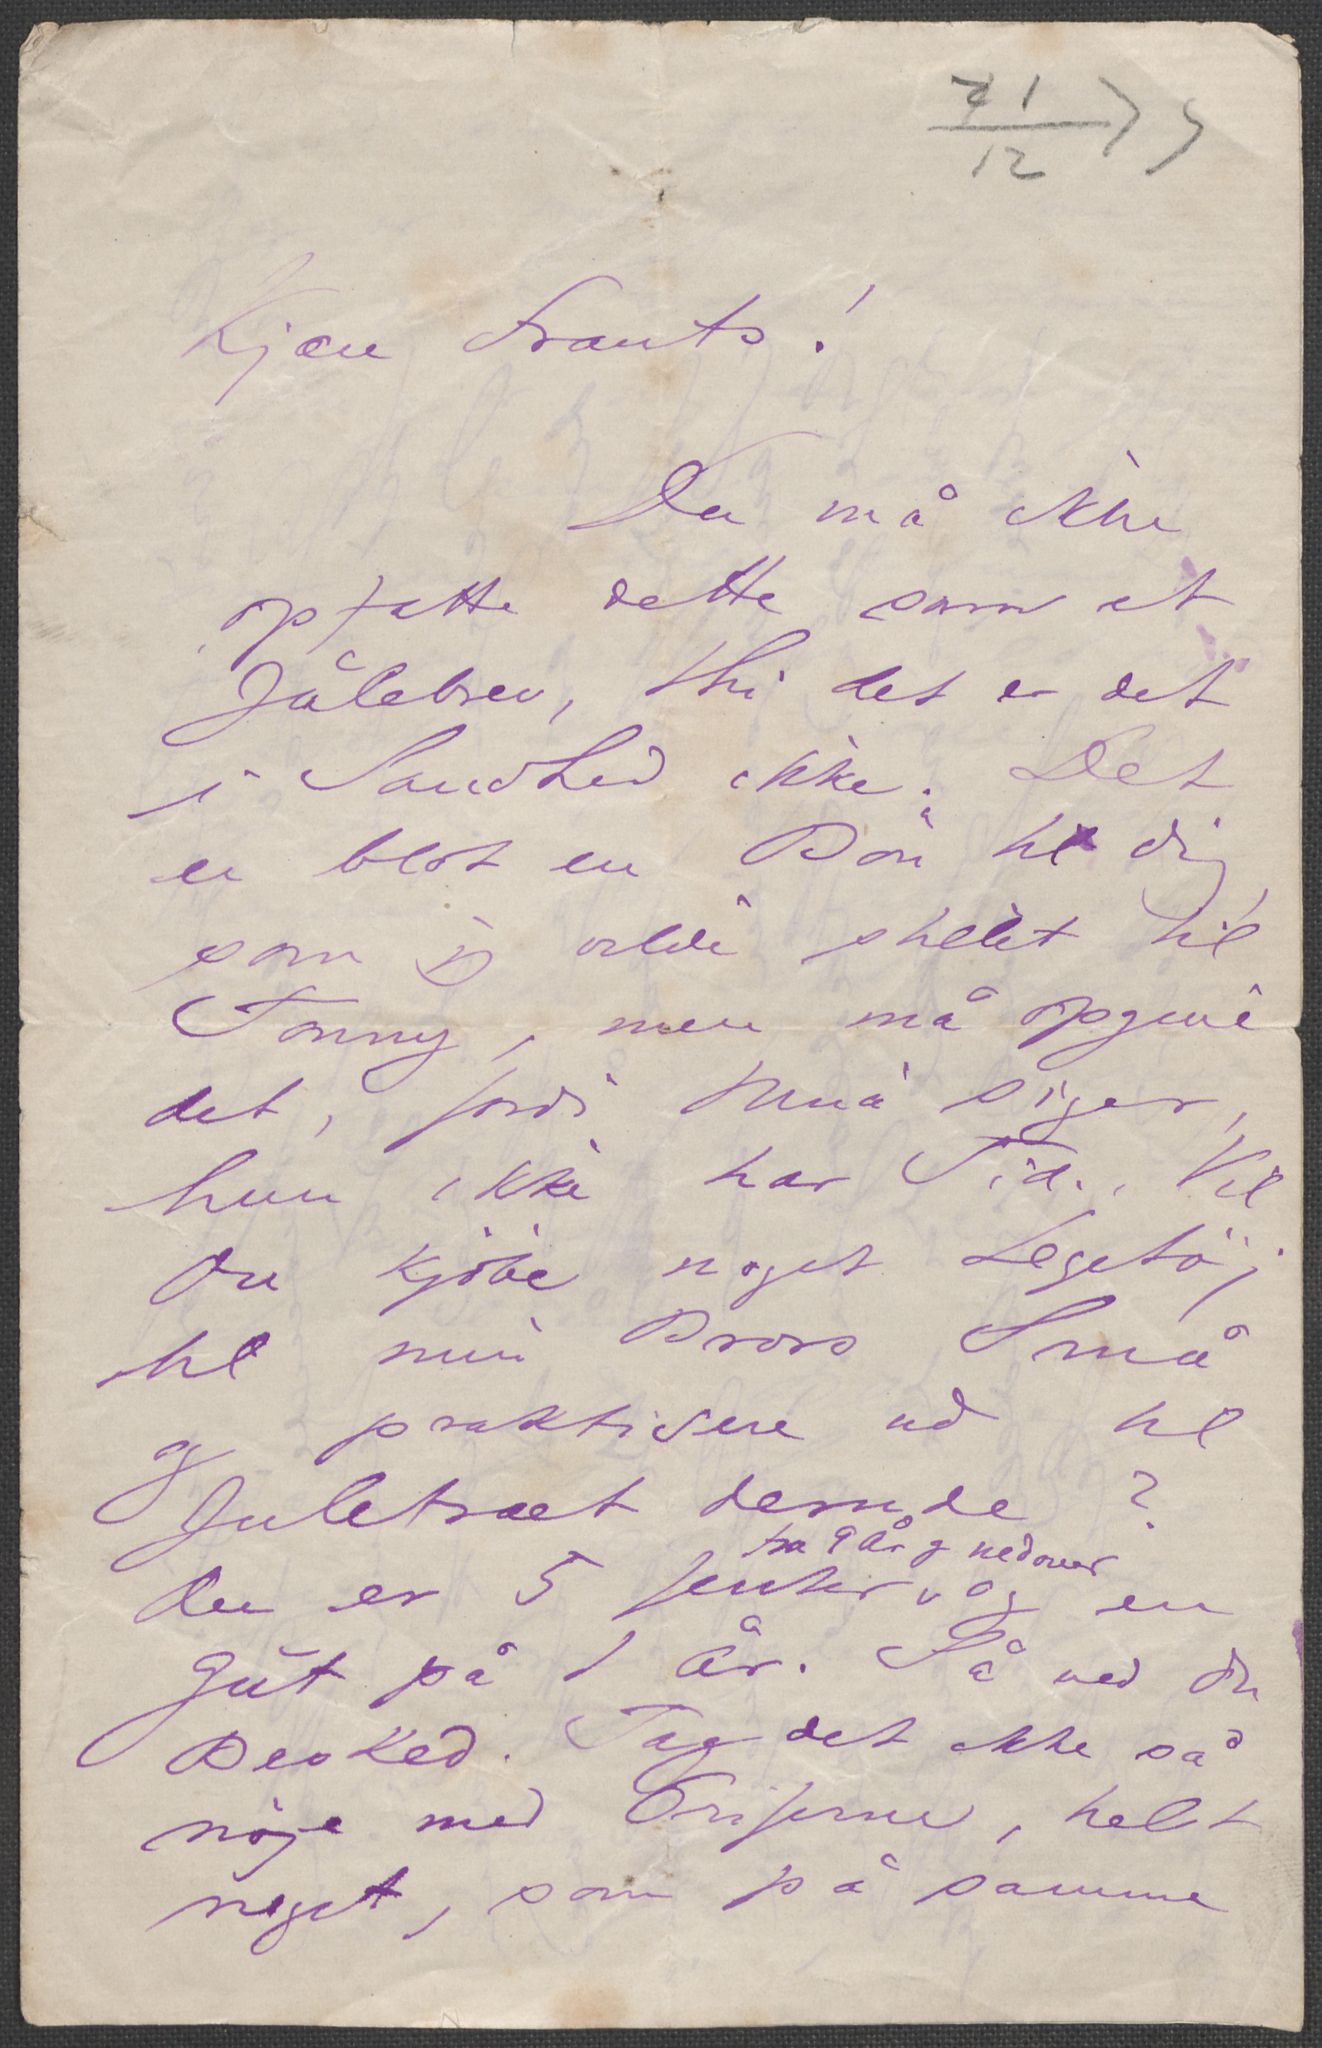 21/12 77
Kjære Frants!
Du må ikke
opfatte dette som et
Julebrev, thi det er det
i Sandhed ikke. Det
er blot en Bön til dig,
som jeg vilde skillet til
Tonny, men må opgive
det, fordi Nina siger,
hun ikke har Tid. Vil
Du kjöbe noget Legetöj
til min Brors Små
og praktisere ud til
Juletræet derude?
fra 9 År og nedover
Der er 5 Jenter og en
Gut på 1 År. Så ved Du
Besked. Tag det ikke så
nöje med Priserne, helst
noget, som på samme